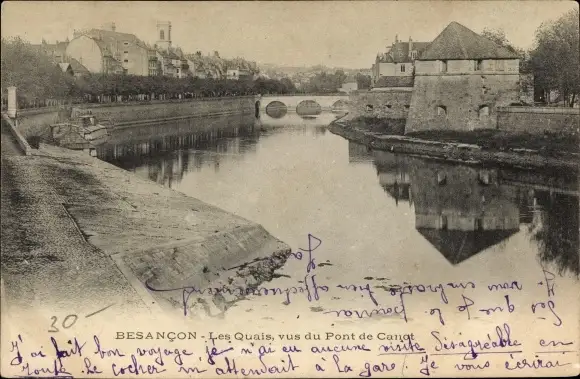 30
BESANÇON - Les Quais, vus du Pont de Canot
J'ai fait bon voyage je n'ai eu aucune visite désagréable en
route. Le cocher m'attendait à la gare. Je vous écrirai
que je le pourrai
vous embrasse bien affectueusement